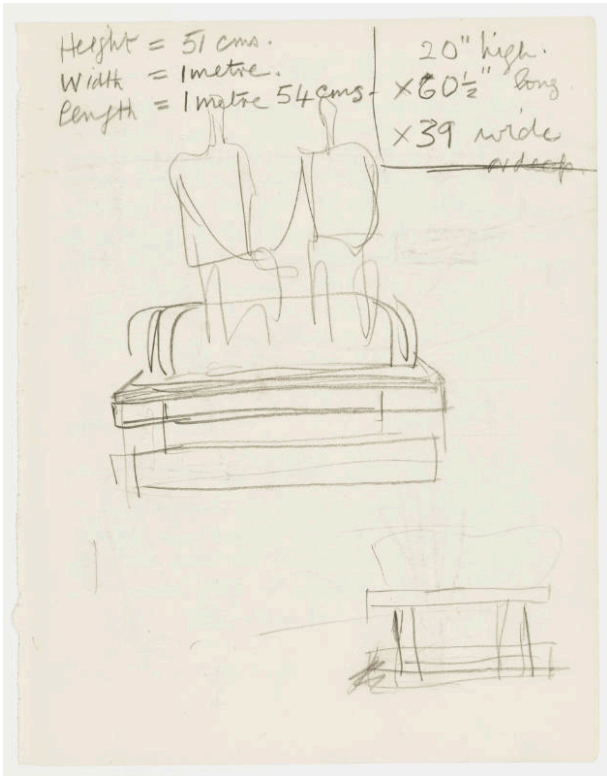 Height = 51 cms.
Width = 1 metre.
Length = 1 metre 54 cms
20" high.
× 60½" long
× 39 wide